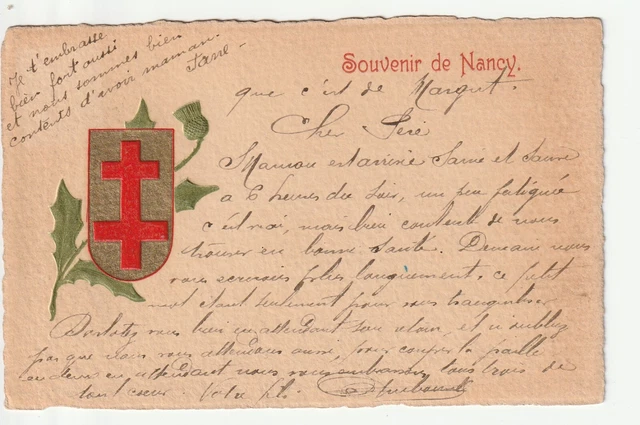 Je t'embrasse
bien fort aussi
et nous sommes bien
contents d'avoir maman.
Souvenir de Nancy.
que c'est de Margot.
Cher Père
Maman est arrivée Saine et Sauve
a 6 heures du soir, un peu fatiguée
c'est vrai, mais bien contente de nous
trouver en bonne santé. Demain nous
vous écrirons plus longuement, ce petit
mot étant seulement pour vous tranquilliser
vous bien en attendant son retour, et n'oubliez
pas que nous vous attendons aussi, pour couper la paille
en attendant nous vous embrassons tous trois de
tout coeur. Votre fils.